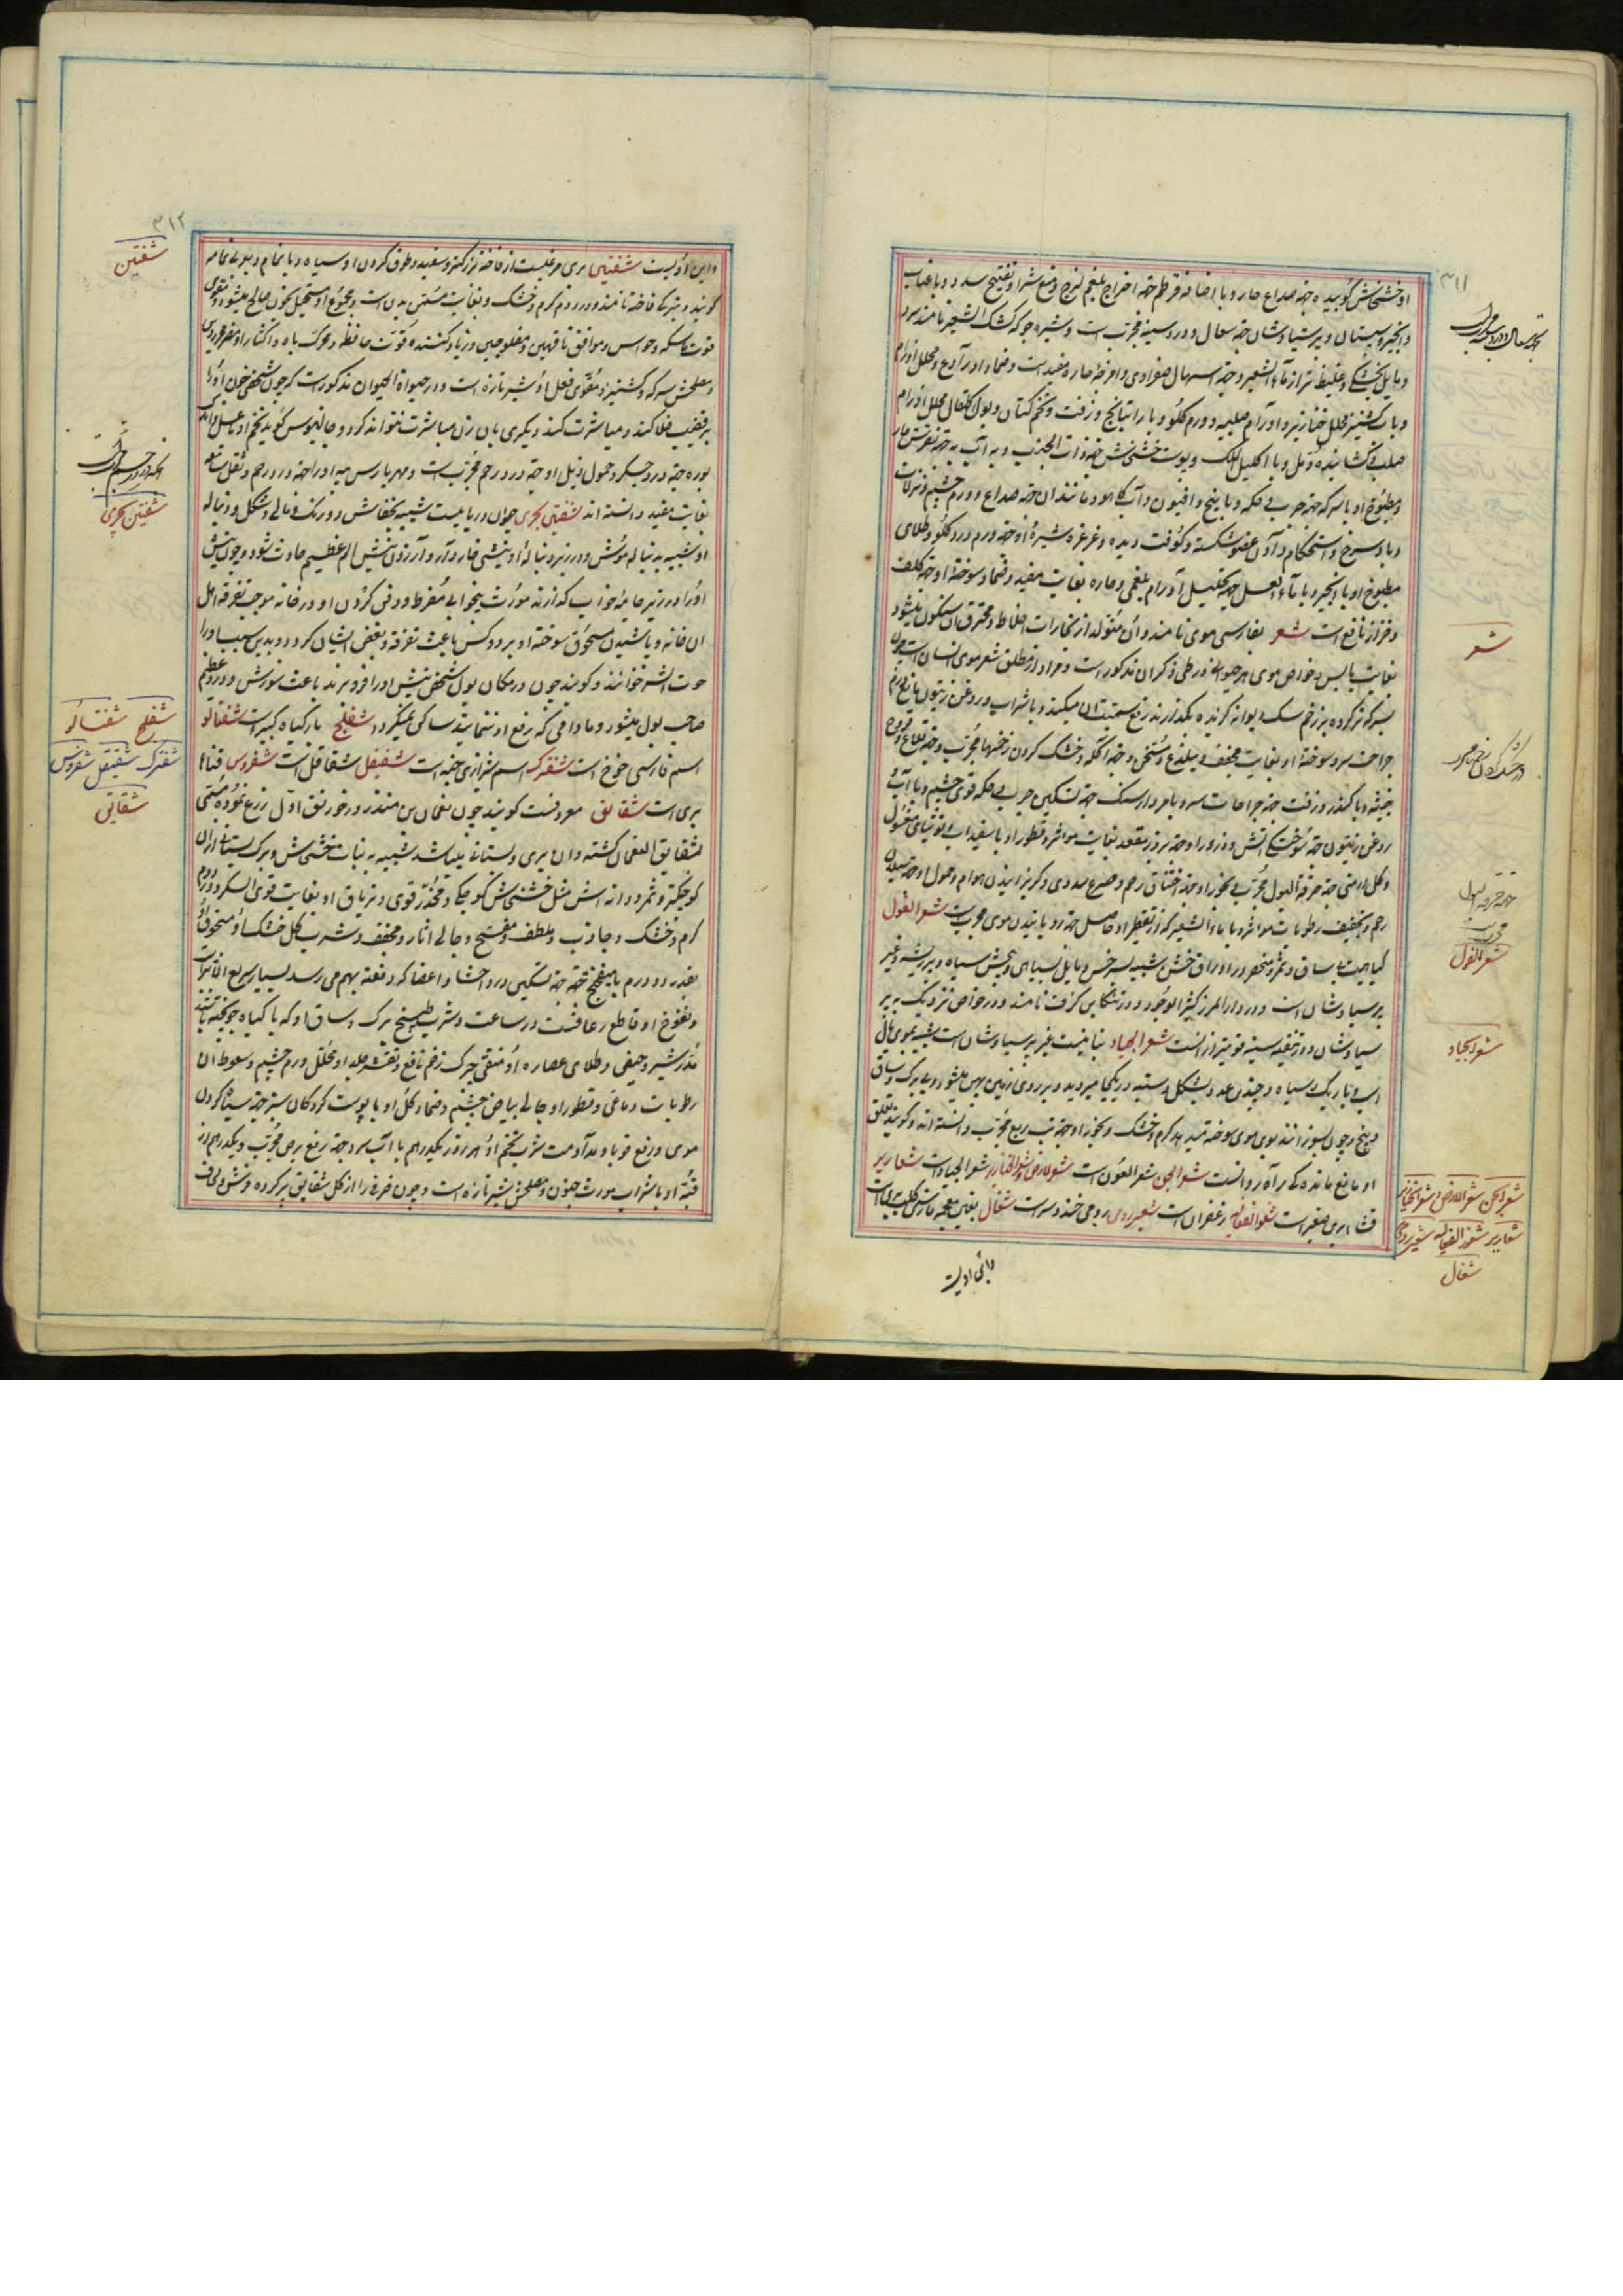 ۳۱۱
او خشخاش کوبیده جهة صداع حار و با اضافه قرطم جهة اخراج بلغم لزج و منع شرا و تفتیح سدد و با عناب
و انجیر و سپستان و پرسیاوشان جهة سعال و درد سینه مجربست و شیره جو که کشک الشعیر نامند سرد
و مایل بخشکی و غلیظ تر از ماء الشعیر و جهة اسهال صفراوی و امزجه حاره مفید است و ضماد او رادع و محلل اورام
و با کشنیز محلل خنازیر و اورام صلبه و ورم گلو و با راتیانج و زفت و تخم کتان و بول اطفال محلل اورام
صلب و گشاینده دمل و با اکلیل الملک و پوست خشخاش جهة ذات الجنب و به آب به جهة نقرس حار
و مطبوخ او با سرکه جهة جرب و حکه و با بنج و افیون و آب کاهو و مانند ان جهة صداع و ورم چشم و نزلات
و باد سرخ و استحکام دادن عضو شکسته و کوفت دیده و غرغره شیرهٔ او جهة ورم و درد گلو و طلای
مطبوخ او با انجیر و با ماء العسل جهة تحلیل اورام بلغمی و حاره بغایت مفید و ضماد سوختهٔ او جهة کلف
و حزاز نافع است شعر بفارسی موی نامند و ان متولد از بخارات اخلاط و محترق ان متکون میشود
بغایت یابس و خواص موی هر حیوانی در طی ذکر ان مذکور است و مراد از مطلق شعر موی انسان است چون
بسرکه تر کرده بر زخم سگ دیوانه گزنده بگذارند رفع سمیت ان میکند و با شراب و روغن زیتون مانع ورم
جراحت سر و سوختهٔ او بغایت مجفف و بیلذع و مسخن و جهة اکله و خشک کردن زخمها مجرب و جهة قلاع و قروح
خبیثه و با کندر و زفت جهة جراحات سر و با مردار سنگ جهة تسکین جرب و حکه قوی چشم و با آب
روغن زیتون جهة سوختگی آتش و ذرور او جهة بروز مقعد بغایت مؤثر و قطور او با سفیداب و توتیای مغسول
و گل ارمنی جهة حرقة البول مجرب و بخور او جهة اختناق رحم و صرع سددی و گریزانیدن هوام و حمول او جهة سیلان
رحم و تجفیف رطوبات مؤثر و با ماء الشعیر که از تقطیر او حاصل جهة رویانیدن موی مجربست شعر الغول
گیاهیست با ساق و ثمر و منحصر در اوراق خشن شبیه بسرخس و مایل بسیاهی و بخش سیاه و پر ریشه و غیر
پرسیاوشان است و در دارالمرز کثیر الوجود و در تنکابن کزف نامند و در خواص نزدیک به پر
سیاوشان و در تنقیه سینه قویتر از انست شعر الجیاد نباتیست غیر پرسیاوشان است شبیه بموی یال
اسب و باریک و سیاه و چندین عدد بشکل دسته در یکجا میروید و بر روی زمین پهن میشود و بی برگ و ساق
و بیخ و چون بسوزانند بوی موی سوخته میدهد گرم و خشک و بخور او جهة تب ربع مجرب دانسته اند و گویند تعلیق
او مانع مانده کی راه رو انست شعر الجن شعر الغول است شعر الارض و شعر الخنازیر شعر الجیاد است شعاریر
قثاء بری صغیر است شعر الفعاله زعفران است شعیر رومی خندروس است شغال بغین معجمه فارسی کلب بری است
و ابن اویست
جهة سعال و درد سینه مجرب
شعر
جهة حرقه بول مجرب
شعر الغول
شعر الجیاد
شعر الجن شعر الارض شعر الخنازیر
شعاریر شعر الفعاله شعیر رومی
شغال
۳۱۲
و ابن اویست شفنین بری مرغیست از فاخته بزرگتر و سفید و طوق گردن او سیاه و بیمام و بعربی یمامه
گویند و بترکی فاخته نامند و در دوم گرم و خشک و بغایت مسمن بدن است و مجموع او مستحیل بخون صالح میشود و مقوی
قوت ماسکه و حواس و موافق ناقهین و مفلوجین و زیاد کننده قوت حافظه و محرک باه و اکثار او مضر محرورین
و مصلحش سرکه و کشنیز و مقوی فعل او شیر تازه است و در حیوة الحیوان مذکور است که چون شخصی خون او را
بر قضیب طلا کند و مباشرت کند دیگری بان زن مباشرت نتواند کرد و جالینوس گوید تخم او با عسل و اندک
بوره جهة درد جگر و حمول زبل او جهة درد رحم مجربست و مهریارس پیه او را جهة درد رحم و ثقل سامعه
بغایت مفید دانسته اند شفنین بحری حیوان دریاییست شبیه بخفاش و در رنگ و بال و شکل و دنبالهٔ
او شبیه بدنباله موش و در زیر دنبالهٔ او نیشی خار دار و از زدن نیش الم عظیم حادث شود و چون نیش
او را در زیر جامهٔ خواب گذارند مورث بیخوابی مفرط و دفن کردن او در خانه موجب تفرقه اهل
ان خانه و پاشیدن مسحوق سوخته او بر دو کس باعث تفرقه و بغض ایشان گردد و بدین سبب او را
حوت الشر خوانند و گویند چون در مکان بول شخصی نیش او را فرو برند باعث سوزش و درد عظیم
صاحب بول میشود و مادامی که رفع او ننمایند ساکن نمیگردد شفلح بار گیاه کبر است شفتالو
اسم فارسی خوخ است شفترک اسم شیرازی حبه است شفیقل شقاقل است شفروس قثاء
بری است شقایق معروفست گویند چون نعمان بن منذر در خورنق اول زرع نموده مسمی
بشقایق النعمان گشته و ان بری و بستانی میباشد شبیه به نبات خشخاش و برگ بستانی از ان
کوچکتر و ثمر و دانه اش مثل خشخاش کوچکی و مخدر قوی و تریاق او بغایت قوی السکر و در دوم
گرم و خشک و جاذب و ملطف و مفتح و جالی اثار و مجفف و شرب گل خشک او و مسحوق او
بقدر دو درم با میفختج جهة تسکین درد احشا و اعضا که دفعة بهم میرسد بسیار سریع الاثر است
و نفوخ او قاطع رعافست در ساعت و شرب طبیخ برگ و ساق او که با گیاه جو پخته باشند
مدر شیر و حیض و طلای عصاره او منقی چرک زخم نافع و تقشر جلد او محلل ورم چشم و سعوط ان
رطوبات دماغی و قطور او جالی بیاض چشم و ضماد گل او با پوست گردکان سبز جهة سیاه کردن
موی و رفع قوبا و مداومت شرب تخم او هر روز یکدرهم با آب سرد جهة رفع برص مجرب و یکدرهم از
قبهٔ او با شراب مورث جنون و مصلحش شیر تازه است و چون ظرفی را از گل شقایق پر کرده و شش وقیه
شفنین
شفنین بحری
شفلح شفتالو
شفترک شفیقل شفروس
شقایق